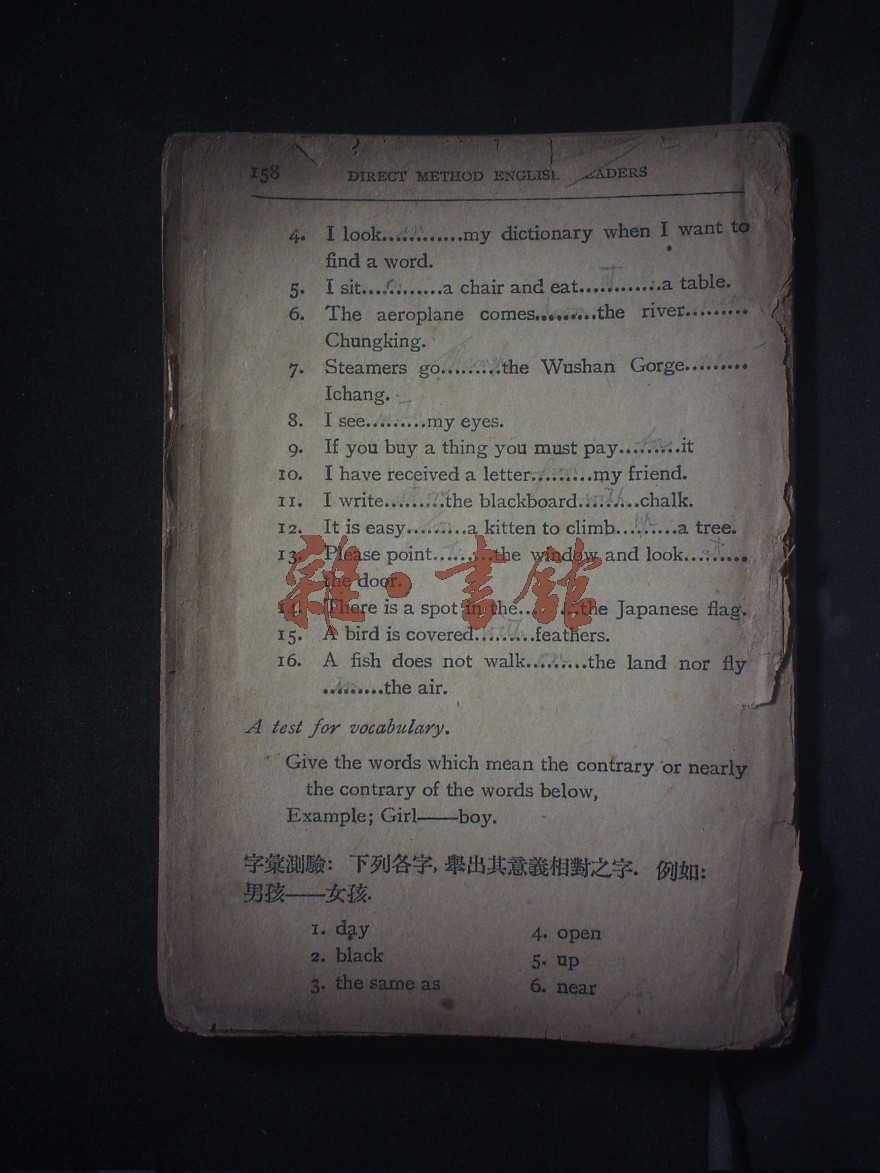 158 DIRECT METHOD ENGLISH READERS
4. I look............my dictionary when I want to
find a word.
5. I sit............a chair and eat............a table.
6. The aeroplane comes.........the river.........
Chungking.
7. Steamers go.........the Wushan Gorge.........
Ichang.
8. I see.........my eyes.
9. If you buy a thing you must pay.........it
10. I have received a letter.........my friend.
11. I write.........the blackboard.........chalk.
12. It is easy.........a kitten to climb.........a tree.
13. Please point.........the window and look.........
the door.
14. There is a spot in the.........the Japanese flag.
15. A bird is covered.........feathers.
16. A fish does not walk.........the land nor fly
.........the air.
A test for vocabulary.
Give the words which mean the contrary or nearly
the contrary of the words below,
Example; Girl——boy.
字彙測驗: 下列各字, 舉出其意義相對之字. 例如:
男孩——女孩.
1. day 4. open
2. black 5. up
3. the same as 6. near
雜·書館